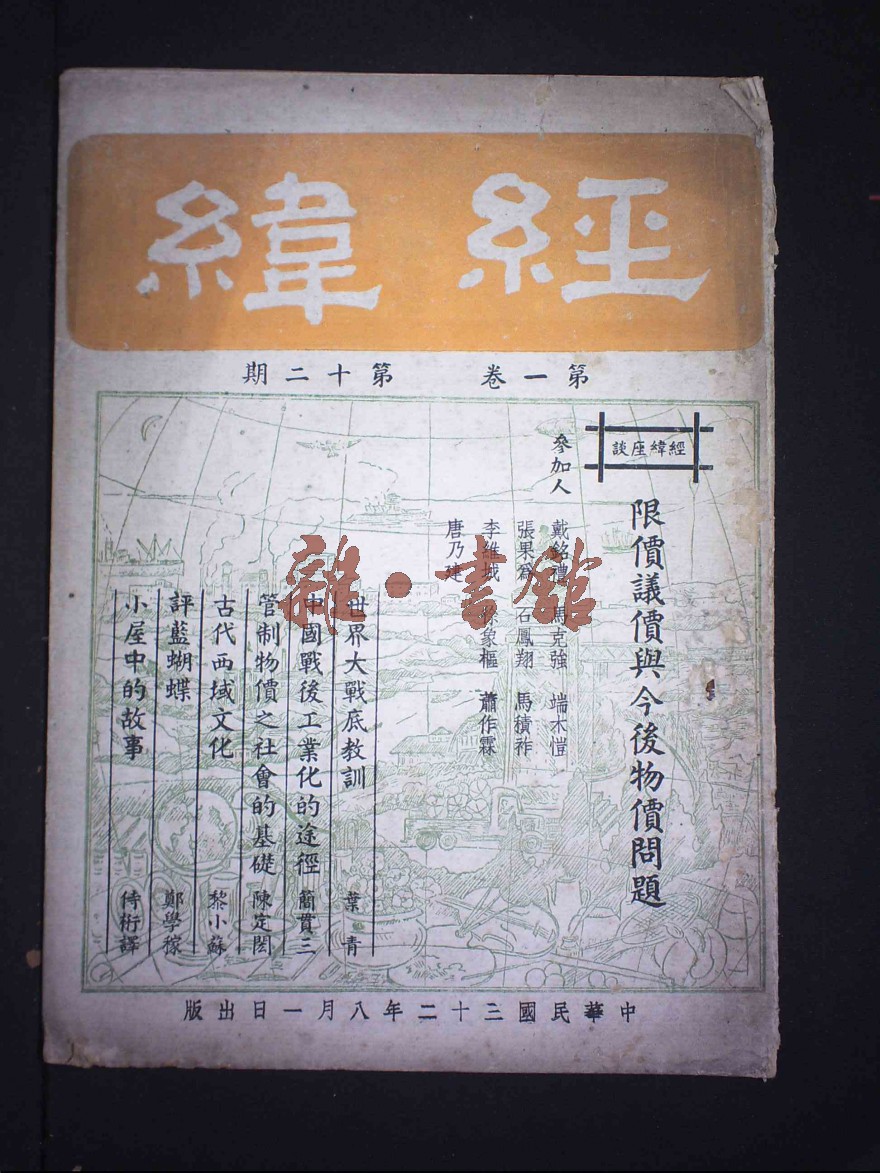 經緯
第一卷 第十二期
經緯座談
限價議價與今後物價問題
參加人
戴銘禮 馬克強 端木愷
張果為 石鳳翔 馬積祚
李維城 徐象樞 蕭作霖
唐乃建
世界大戰底教訓 葉青
中國戰後工業化的途徑 簡貫三
管制物價之社會的基礎 陳定閎
古代西域文化 黎小蘇
評藍蝴蝶 鄭學稼
小屋中的故事 侍術譯
中華民國三十二年八月一日出版
雜·書館